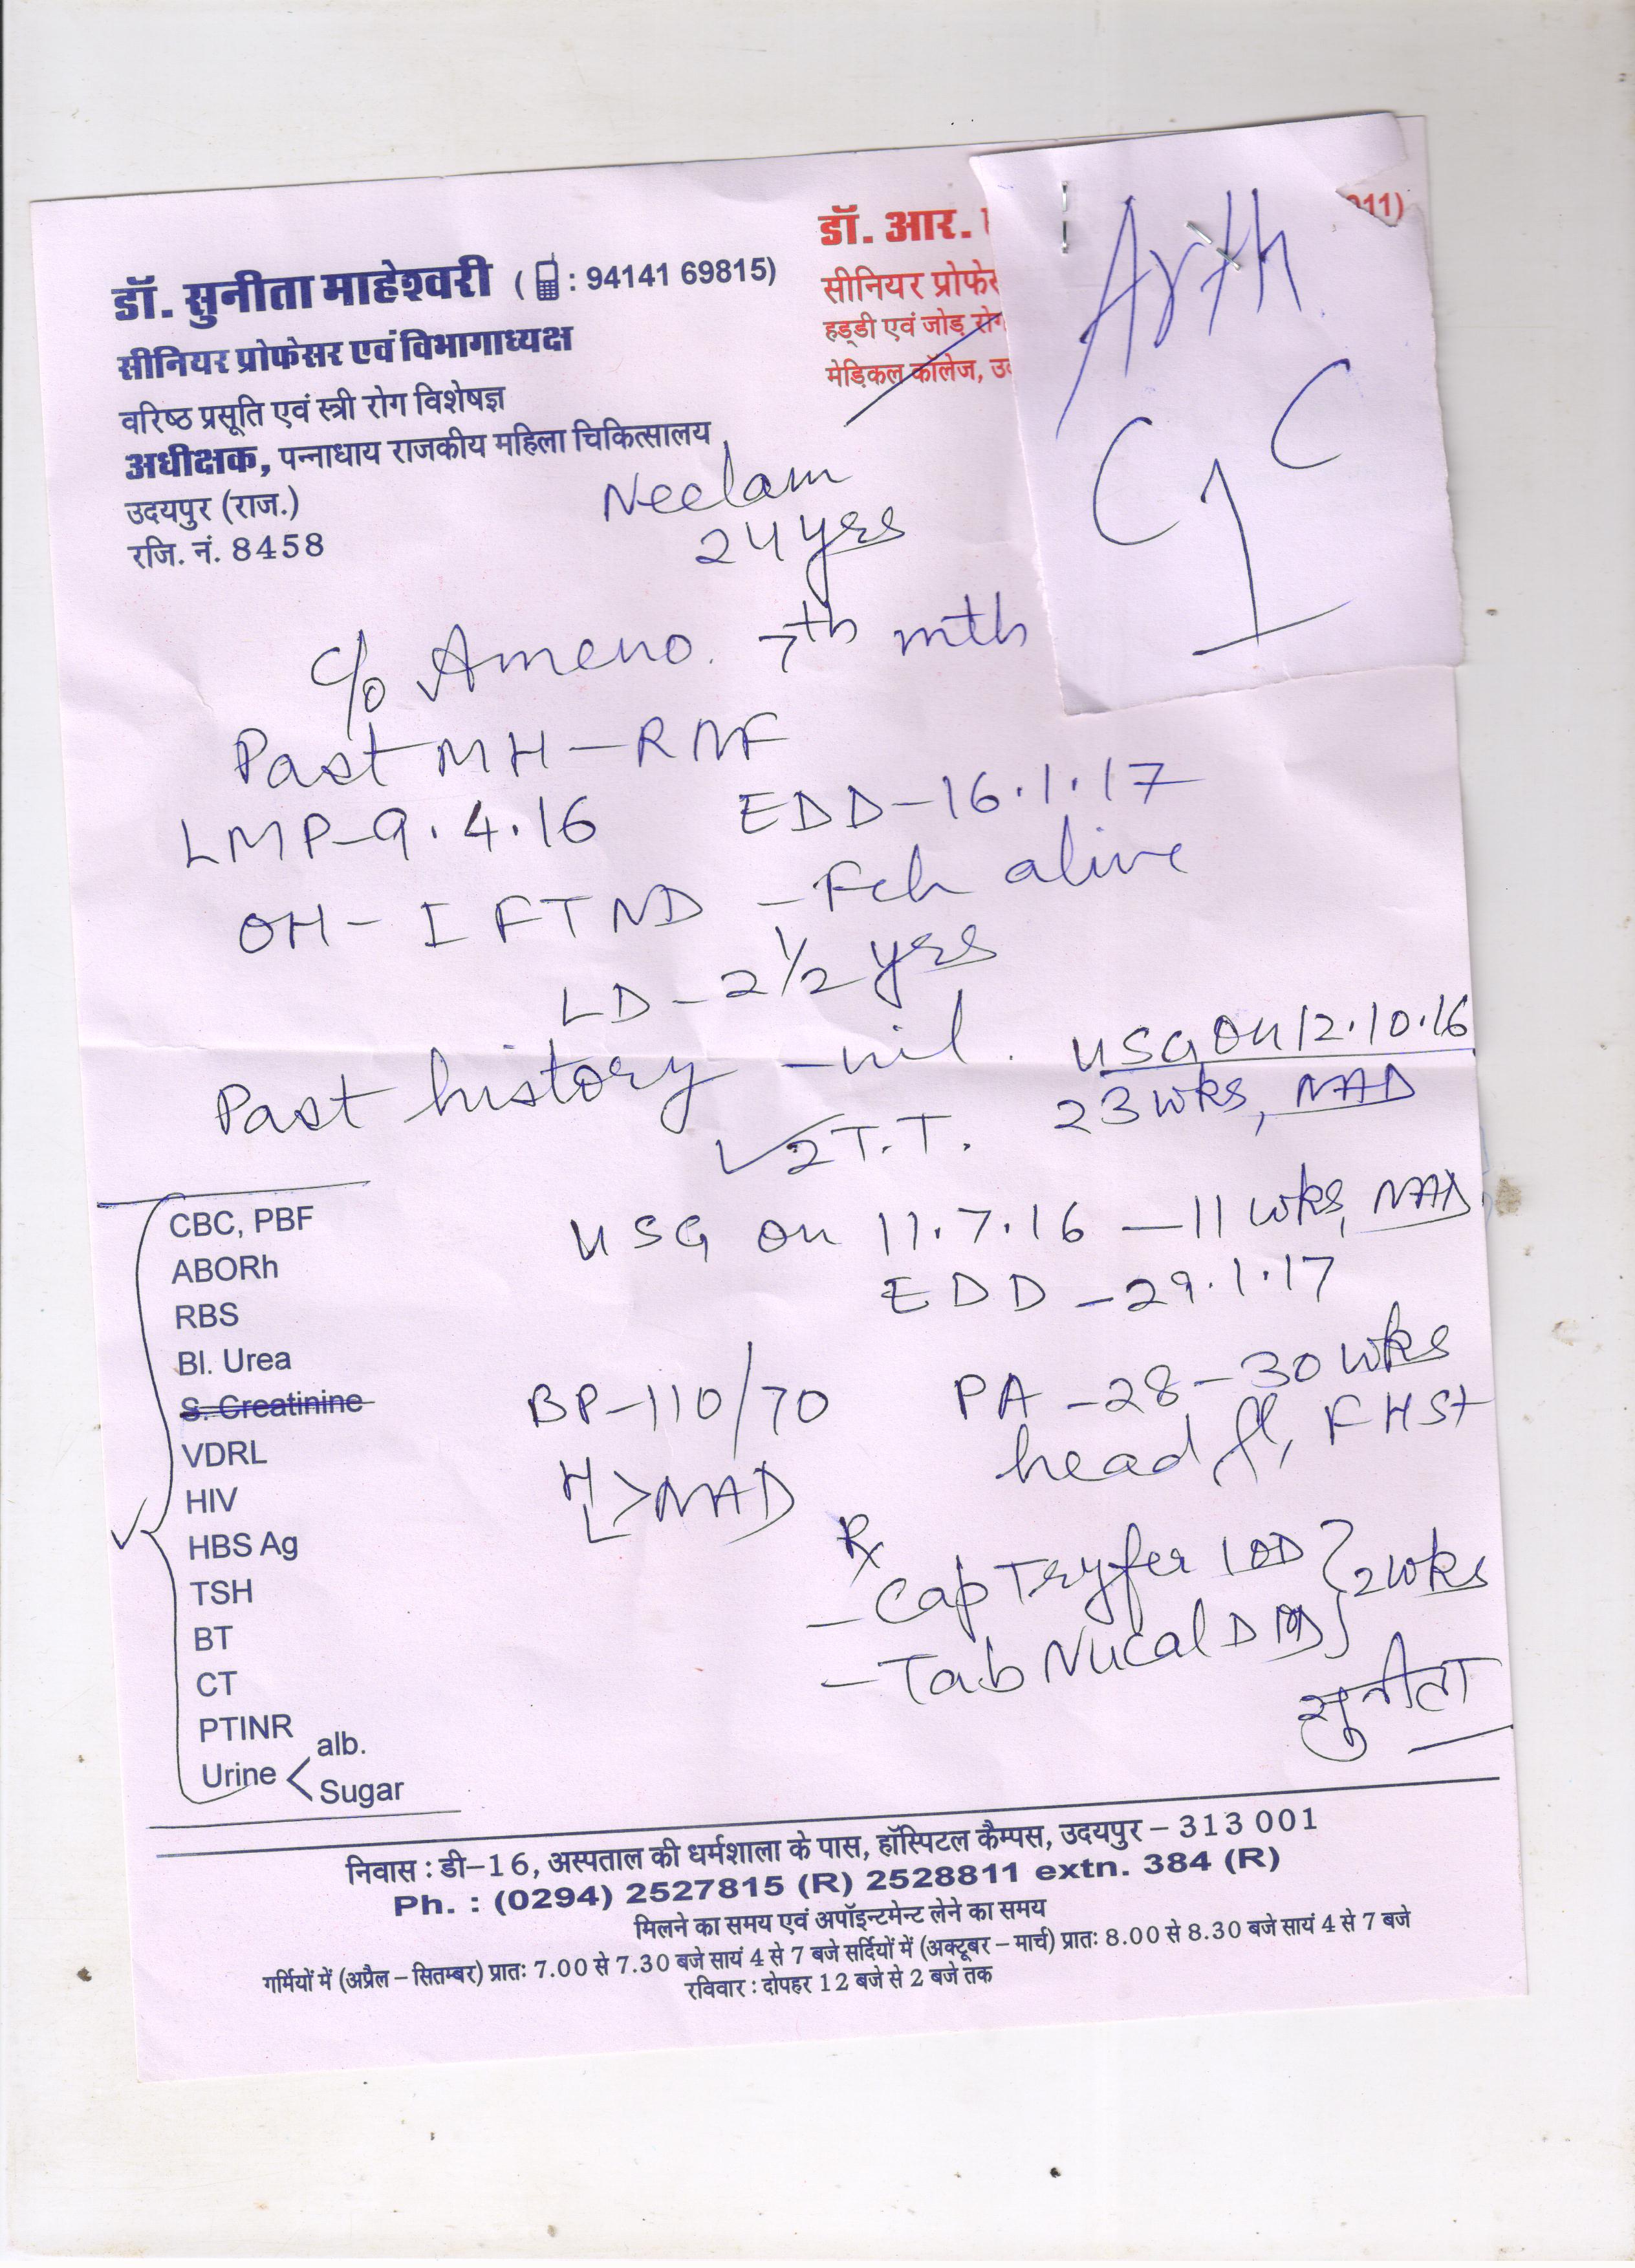 डॉ. सुनीता माहेश्वरी ( : 94141 69815)
सीनियर प्रोफेसर एवं विभागाध्यक्ष
वरिष्ठ प्रसूति एवं स्त्री रोग विशेषज्ञ
अधीक्षक, पन्नाधाय राजकीय महिला चिकित्सालय
उदयपुर (राज.)
रजि. नं. 8458
डॉ. आर.
सीनियर
हड्डी एवं जोड़ रोग
मेडिकल कॉलेज,
011)
Arth
Neelam
24 yrs
c/o Ameno. 7th mth
Past MH - RNF
LMP - 9.4.16 EDD - 16.1.17
OH - I FTND - Fch alive
LD - 2 1/2 yrs
Past history - nil.
USG on 12.10.16
23 wks, NAD
2 T.T.
USG on 11.7.16 - 11 wks, NAD
EDD - 29.1.17
BP - 110/70 PA - 28 - 30 wks
head fl, FHS+
H
L > NAD
Rx
- Cap Tryfer 1 OD } 2 wks
- Tab Nucal D
सुनीता
CBC, PBF
ABORh
RBS
Bl. Urea
S. Creatinine
VDRL
HIV
HBS Ag
TSH
BT
CT
PTINR
Urine < alb.
Sugar
निवास : डी-16, अस्पताल की धर्मशाला के पास, हॉस्पिटल कैम्पस, उदयपुर - 313 001
Ph. : (0294) 2527815 (R) 2528811 extn. 384 (R)
मिलने का समय एवं अपॉइन्टमेन्ट लेने का समय
गर्मियों में (अप्रैल - सितम्बर) प्रातः 7.00 से 7.30 बजे सायं 4 से 7 बजे सर्दियों में (अक्टूबर - मार्च) प्रातः 8.00 से 8.30 बजे सायं 4 से 7 बजे
रविवार : दोपहर 12 बजे से 2 बजे तक